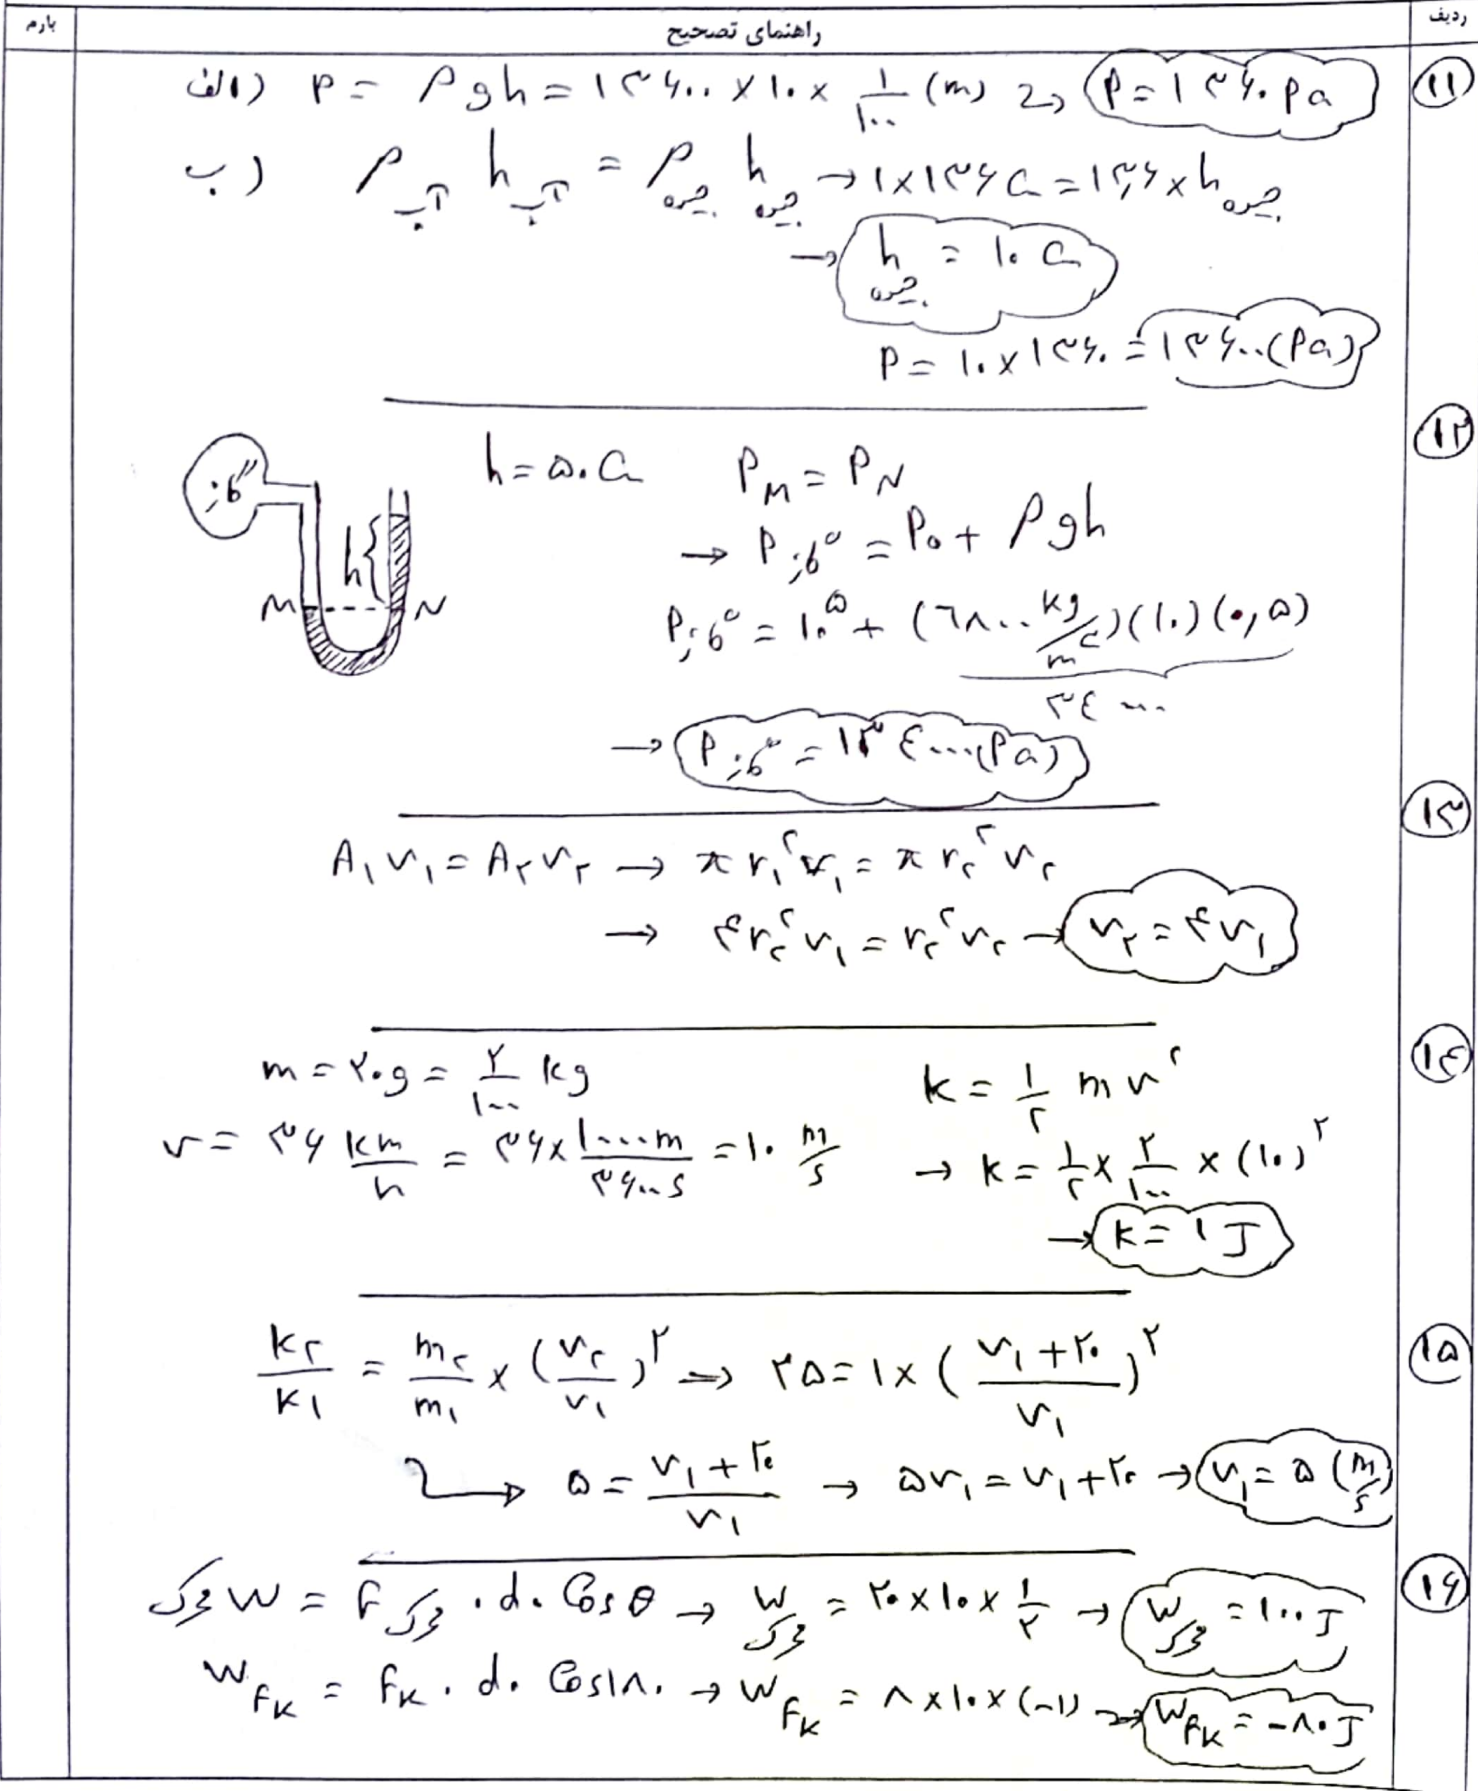 ردیف راهنمای تصحیح بارم
۱۱
الف) P = ρgh = ۱۳۶۰۰ × ۱۰ × ۱/۱۰۰ (m) → P = ۱۳۶۰ Pa
ب) ρ آب h آب = ρ جیوه h جیوه → ۱ × ۱۳۶ Cm = ۱۳,۶ × h جیوه
→ h جیوه = ۱۰ Cm
P = ۱۰ × ۱۳۶۰ = ۱۳۶۰۰ (Pa)
۱۲
گاز h M N
h = ۵۰ Cm P_M = P_N
→ P گاز = P₀ + ρgh
P گاز = ۱۰^۵ + (۶۸۰۰ kg/m³)(۱۰)(۰,۵)
۳۴۰۰۰
→ P گاز = ۱۳۴۰۰۰ (Pa)
۱۳
A₁v₁ = A₂v₂ → πr₁²v₁ = πr₂²v₂
→ ۴r₂²v₁ = r₂²v₂ → v₂ = ۴v₁
۱۴
m = ۲۰g = ۲/۱۰۰ kg K = ۱/۲ mv²
v = ۳۶ km/h = ۳۶ × ۱۰۰۰m/۳۶۰۰s = ۱۰ m/s → K = ۱/۲ × ۲/۱۰۰ × (۱۰)²
→ K = ۱ J
۱۵
K₂/K₁ = m₂/m₁ × (v₂/v₁)² → ۲۵ = ۱ × ((v₁ + ۲۰)/v₁)²
→ ۵ = (v₁ + ۲۰)/v₁ → ۵v₁ = v₁ + ۲۰ → v₁ = ۵ (m/s)
۱۶
W محرک = F محرک . d . Cosθ → W محرک = ۲۰ × ۱۰ × ۱/۲ → W محرک = ۱۰۰ J
W_fK = fK . d . Cos۱۸۰ → W_fK = ۸ × ۱۰ × (-۱) → W_fK = -۸۰ J